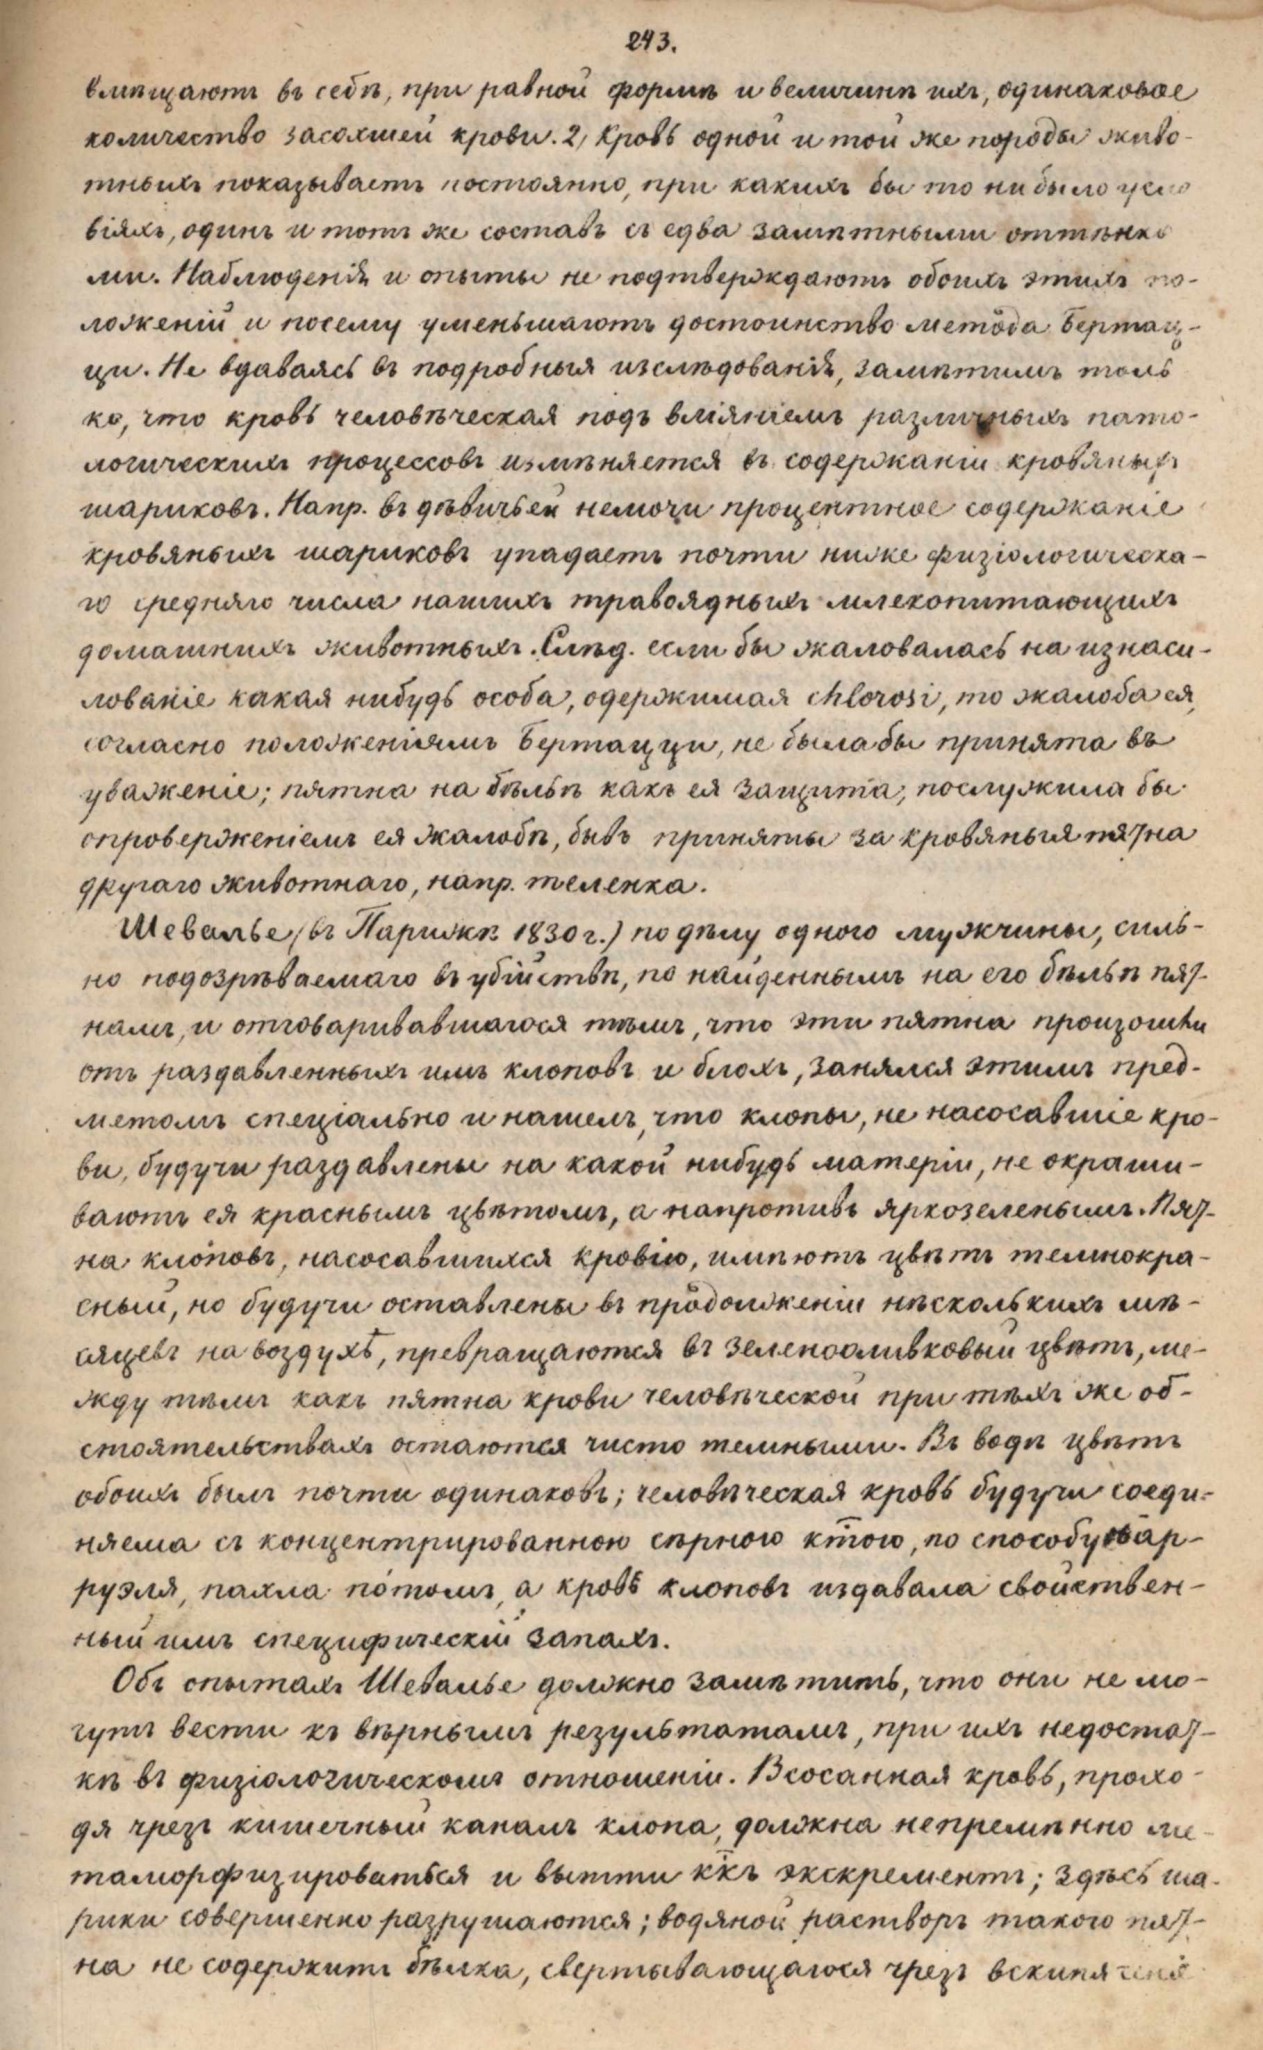 243.
вмѣщаютъ въ себѣ, при равной формѣ и величинѣ ихъ, одинаковое
количество засохшей крови. 2, Кровь одной и той же породы живо-
тныхъ показываетъ постоянно, при какихъ бы то ни было усло
віяхъ, одинъ и тотъ же составъ съ едва замѣтными оттѣнка
ми. Наблюденія и опыты не подтверждаютъ обоихъ этихъ по-
ложеній и посему уменьшаютъ достоинство метода Бертац-
ци. Не вдаваясь въ подробныя изслѣдованія, замѣтимъ толь
ко, что кровь человѣческая подъ вліяніемъ различныхъ пато-
логическихъ процессовъ измѣняется въ содержаніи кровяныхъ
шариковъ. Напр. въ дѣвичьей немочи процентное содержаніе
кровяныхъ шариковъ упадаетъ почти ниже физіологическа-
го средняго числа нашихъ травоядныхъ млекопитающихъ
домашнихъ животныхъ. Слѣд. если бы жаловалась на изнаси-
лованіе какая нибудь особа, одержимая chlorosi, то жалоба ея,
согласно положеніямъ Бертацци, не была бы принята въ
уваженіе; пятна на бѣльѣ какъ ея защита, послужила бы
опроверженіемъ ея жалобѣ, бывъ приняты за кровяныя пятна
другаго животнаго, напр. теленка.
Шевалье (въ Парижѣ 1830 г.) по дѣлу одного мужчины, силь-
но подозрѣваемаго въ убійствѣ, по найденнымъ на его бѣльѣ пят-
намъ, и отговаривавшагося тѣмъ, что эти пятна произошли
отъ раздавленныхъ имъ клоповъ и блохъ, занялся этимъ пред-
метомъ спеціально и нашелъ, что клопы, не насосавшіе кро-
ви, будучи раздавлены на какой нибудь матеріи, не окраши-
ваютъ ея краснымъ цвѣтомъ, а напротивъ яркозеленымъ. Пят-
на клоповъ, насосавшихся кровію, имѣютъ цвѣтъ темнокра-
сный, но будучи оставлены въ продолженіи нѣсколькихъ мѣ-
сяцевъ на воздухѣ, превращаются въ зеленооливковый цвѣтъ, ме-
жду тѣмъ какъ пятна крови человѣческой при тѣхъ же об-
стоятельствахъ остаются чисто темными. Въ водѣ цвѣтъ
обоихъ былъ почти одинаковъ; человѣческая кровь будучи соеди-
няема съ концентрированною сѣрною ктою, по способу Бар-
руэля, пахла по́томъ, а кровь клоповъ издавала свойствен-
ный имъ специфическій запахъ.
Объ опытахъ Шевалье должно замѣтить, что они не мо-
гутъ вести къ вѣрнымъ результатамъ, при ихъ недостат-
кѣ въ физіологическомъ отношеніи. Всосанная кровь, прохо-
дя чрезъ кишечный каналъ клопа, должна непремѣнно ме-
таморфизироваться и вытти ккъ экскрементъ; здѣсь ша-
рики совершенно разрушаются; водяной растворъ такого пят-
на не содержитъ бѣлка, свертывающагося чрезъ вскипяченіе